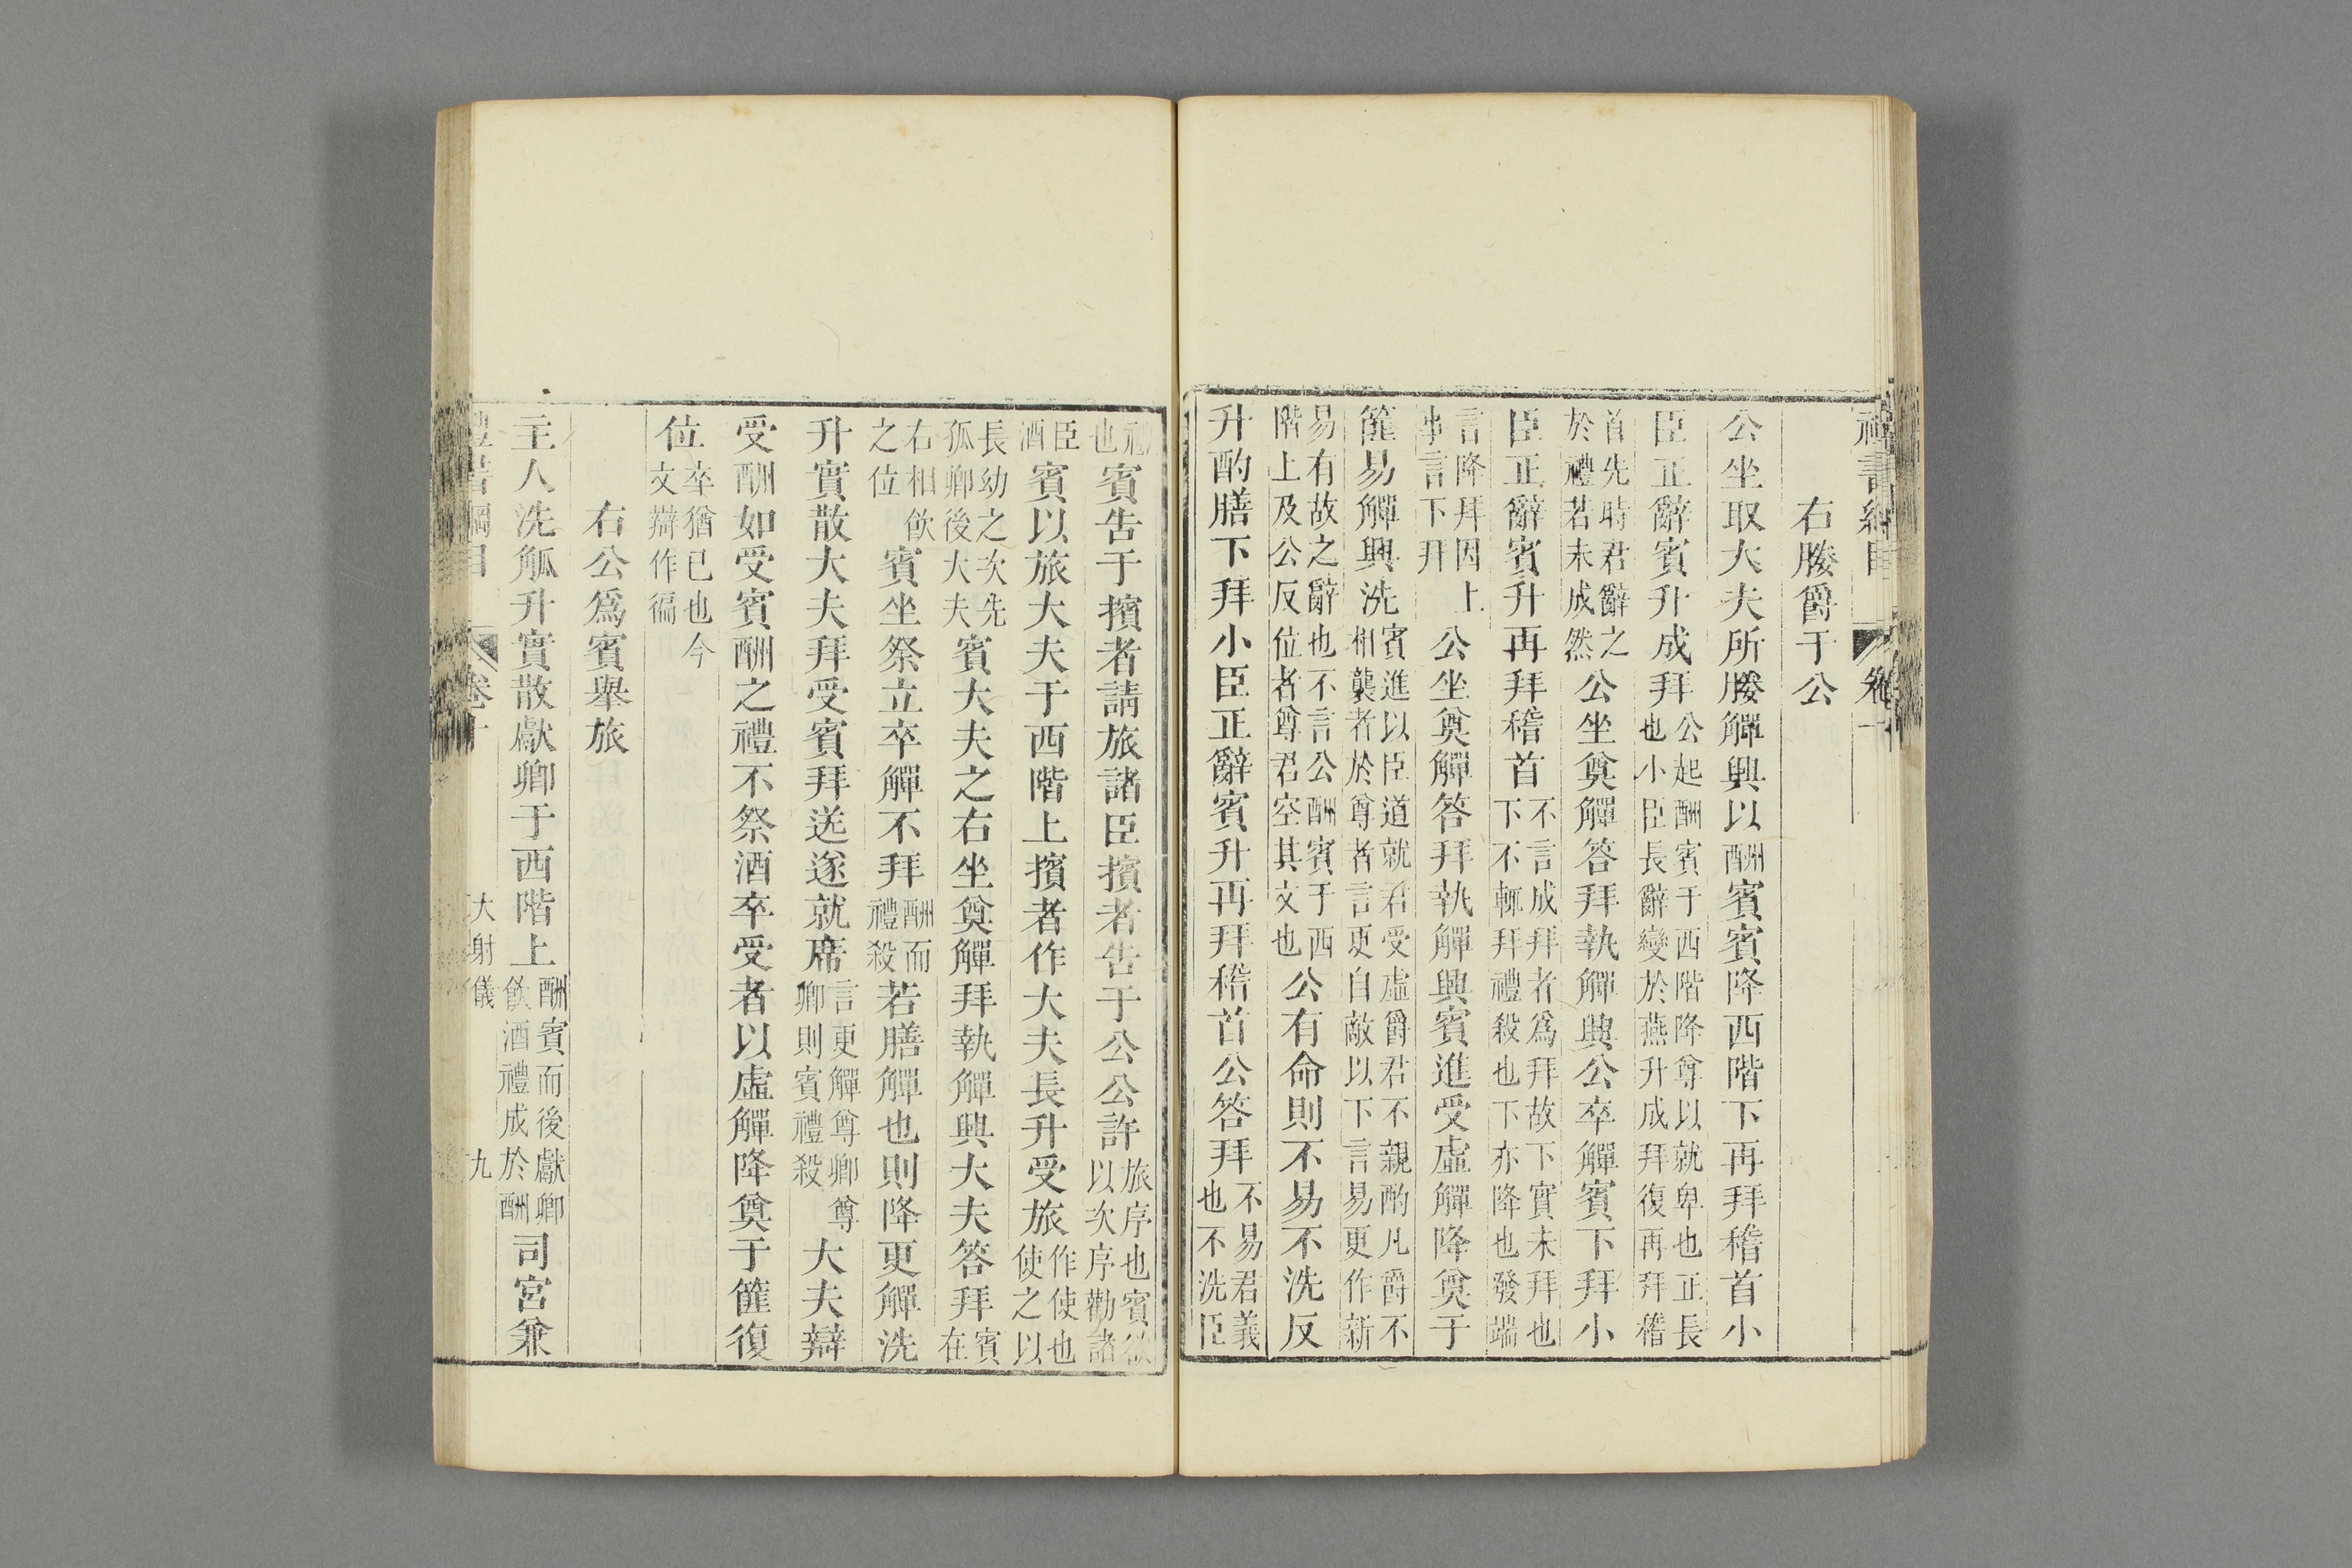 禮書綱目 卷十
右媵爵于公
公坐取大夫所媵觶興以酬賓賓降西階下再拜稽首小
臣正辭賓升成拜公起酬賓于西階降尊以就卑也正長也小臣長辭變於燕升成拜復再拜稽
首先時君辭之於禮若未成然公坐奠觶答拜執觶興公卒觶賓下拜小
臣正辭賓升再拜稽首不言成拜者爲拜故下實未拜也下不輒拜禮殺也下亦降也發端
言降拜因上事言下拜公坐奠觶答拜執觶興賓進受虛觶降奠于
篚易觶興洗賓進以臣道就君受虛爵君不親酌凡爵不相襲者於尊者言更自敵以下言易更作新
易有故之辭也不言公酬賓于西階上及公反位者尊君空其文也公有命則不易不洗反
升酌膳下拜小臣正辭賓升再拜稽首公答拜不易君義也不洗臣
禮也賓告于擯者請旅諸臣擯者告于公公許旅序也賓欲以次序勸諸
臣酒賓以旅大夫于西階上擯者作大夫長升受旅作使也使之以
長幼之次先孤卿後大夫賓大夫之右坐奠觶拜執觶興大夫答拜賓在
右相飲之位賓坐祭立卒觶不拜酬而禮殺若膳觶也則降更觶洗
升實散大夫拜受賓拜送遂就席言更觶尊卿尊卿則賓禮殺大夫辯
受酬如受賓酬之禮不祭酒卒受者以虛觶降奠于篚復
位卒猶已也今文辯作徧
右公爲賓舉旅
主人洗觚升實散獻卿于西階上酬賓而後獻卿飲酒禮成於酬司宮兼
禮書綱目 卷十 大射儀 九